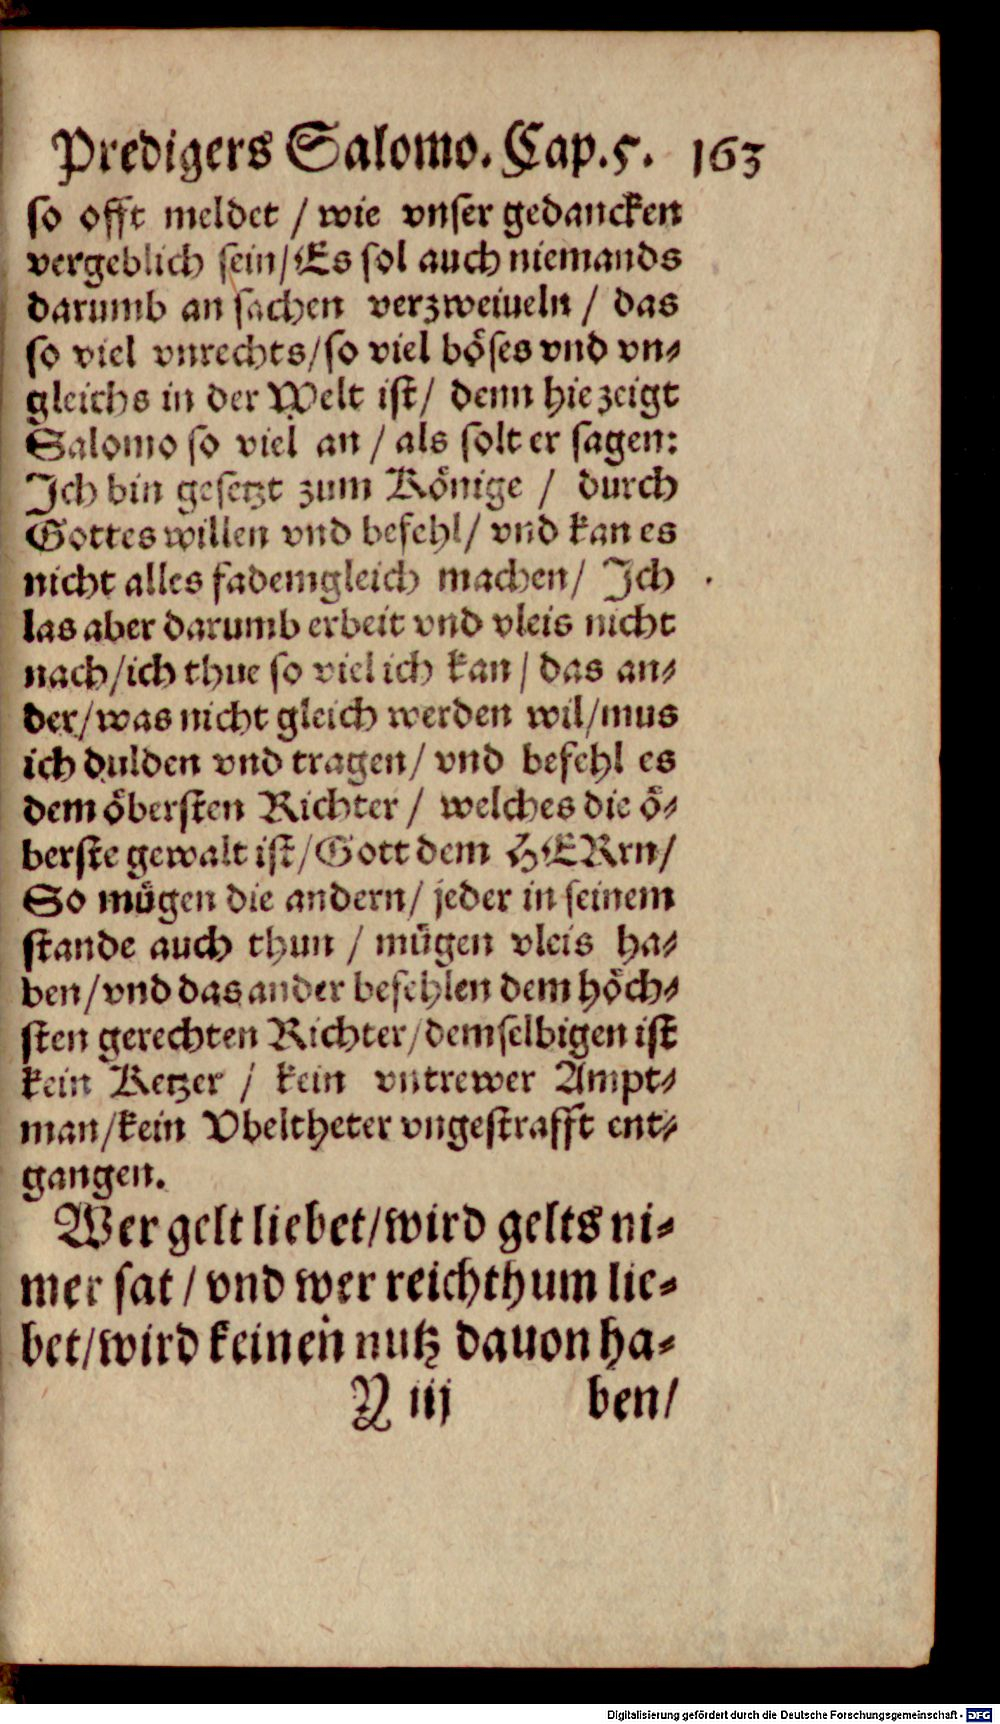 Predigers Salomo. Cap. 5. 163
so offt meldet / wie vnser gedancken
vergeblich sein / Es sol auch niemands
darumb an sachen verzweiueln / das
so viel vnrechts / so viel böses vnd vn-
gleichs in der Welt ist / denn hie zeigt
Salomo so viel an / als solt er sagen:
Jch bin gesetzt zum Könige / durch
Gottes willen vnd befehl / vnd kan es
nicht alles fademgleich machen / Jch
las aber darumb erbeit vnd vleis nicht
nach / ich thue so viel ich kan / das an-
der / was nicht gleich werden wil / mus
ich dulden vnd tragen / vnd befehl es
dem öbersten Richter / welches die ö-
berste gewalt ist / Gott dem HERrn /
So mügen die andern / jeder in seinem
stande auch thun / mügen vleis ha-
ben / vnd das ander befehlen dem höch-
sten gerechten Richter / demselbigen ist
kein Ketzer / kein vntrewer Ampt-
man / kein Vbeltheter vngestrafft ent-
gangen.
Wer gelt liebet / wird gelts ni-
mer sat / vnd wer reichthum lie-
bet / wird keinen nutz dauon ha-
Y iij ben /
Digitalisierung gefördert durch die Deutsche Forschungsgemeinschaft - DFG